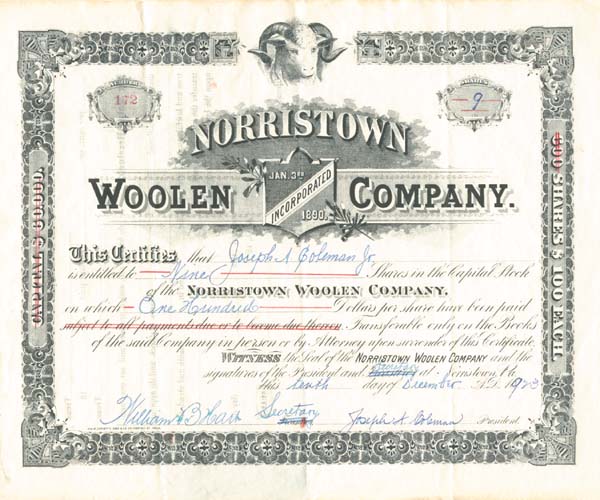 NUMBER
172
SHARES
9
NORRISTOWN
JAN. 3RD
INCORPORATED
1890.
WOOLEN COMPANY.
This Certifies that Joseph A Coleman Jr
is entitled to Nine Shares in the Capital Stock
of the NORRISTOWN WOOLEN COMPANY.
on which One Hundred Dollars per share have been paid
subject to all payments due or to become due thereon Transferable only on the Books
of the said Company in person or by Attorney upon surrender of this Certificate
WITNESS the Seal of the NORRISTOWN WOOLEN COMPANY and the
signatures of the President and at Norristown Pa
this tenth day of December A.D. 1923
Secretary
Joseph A. Coleman President.
CAPITAL $ 60,000.
600 SHARES $ 100 EACH.